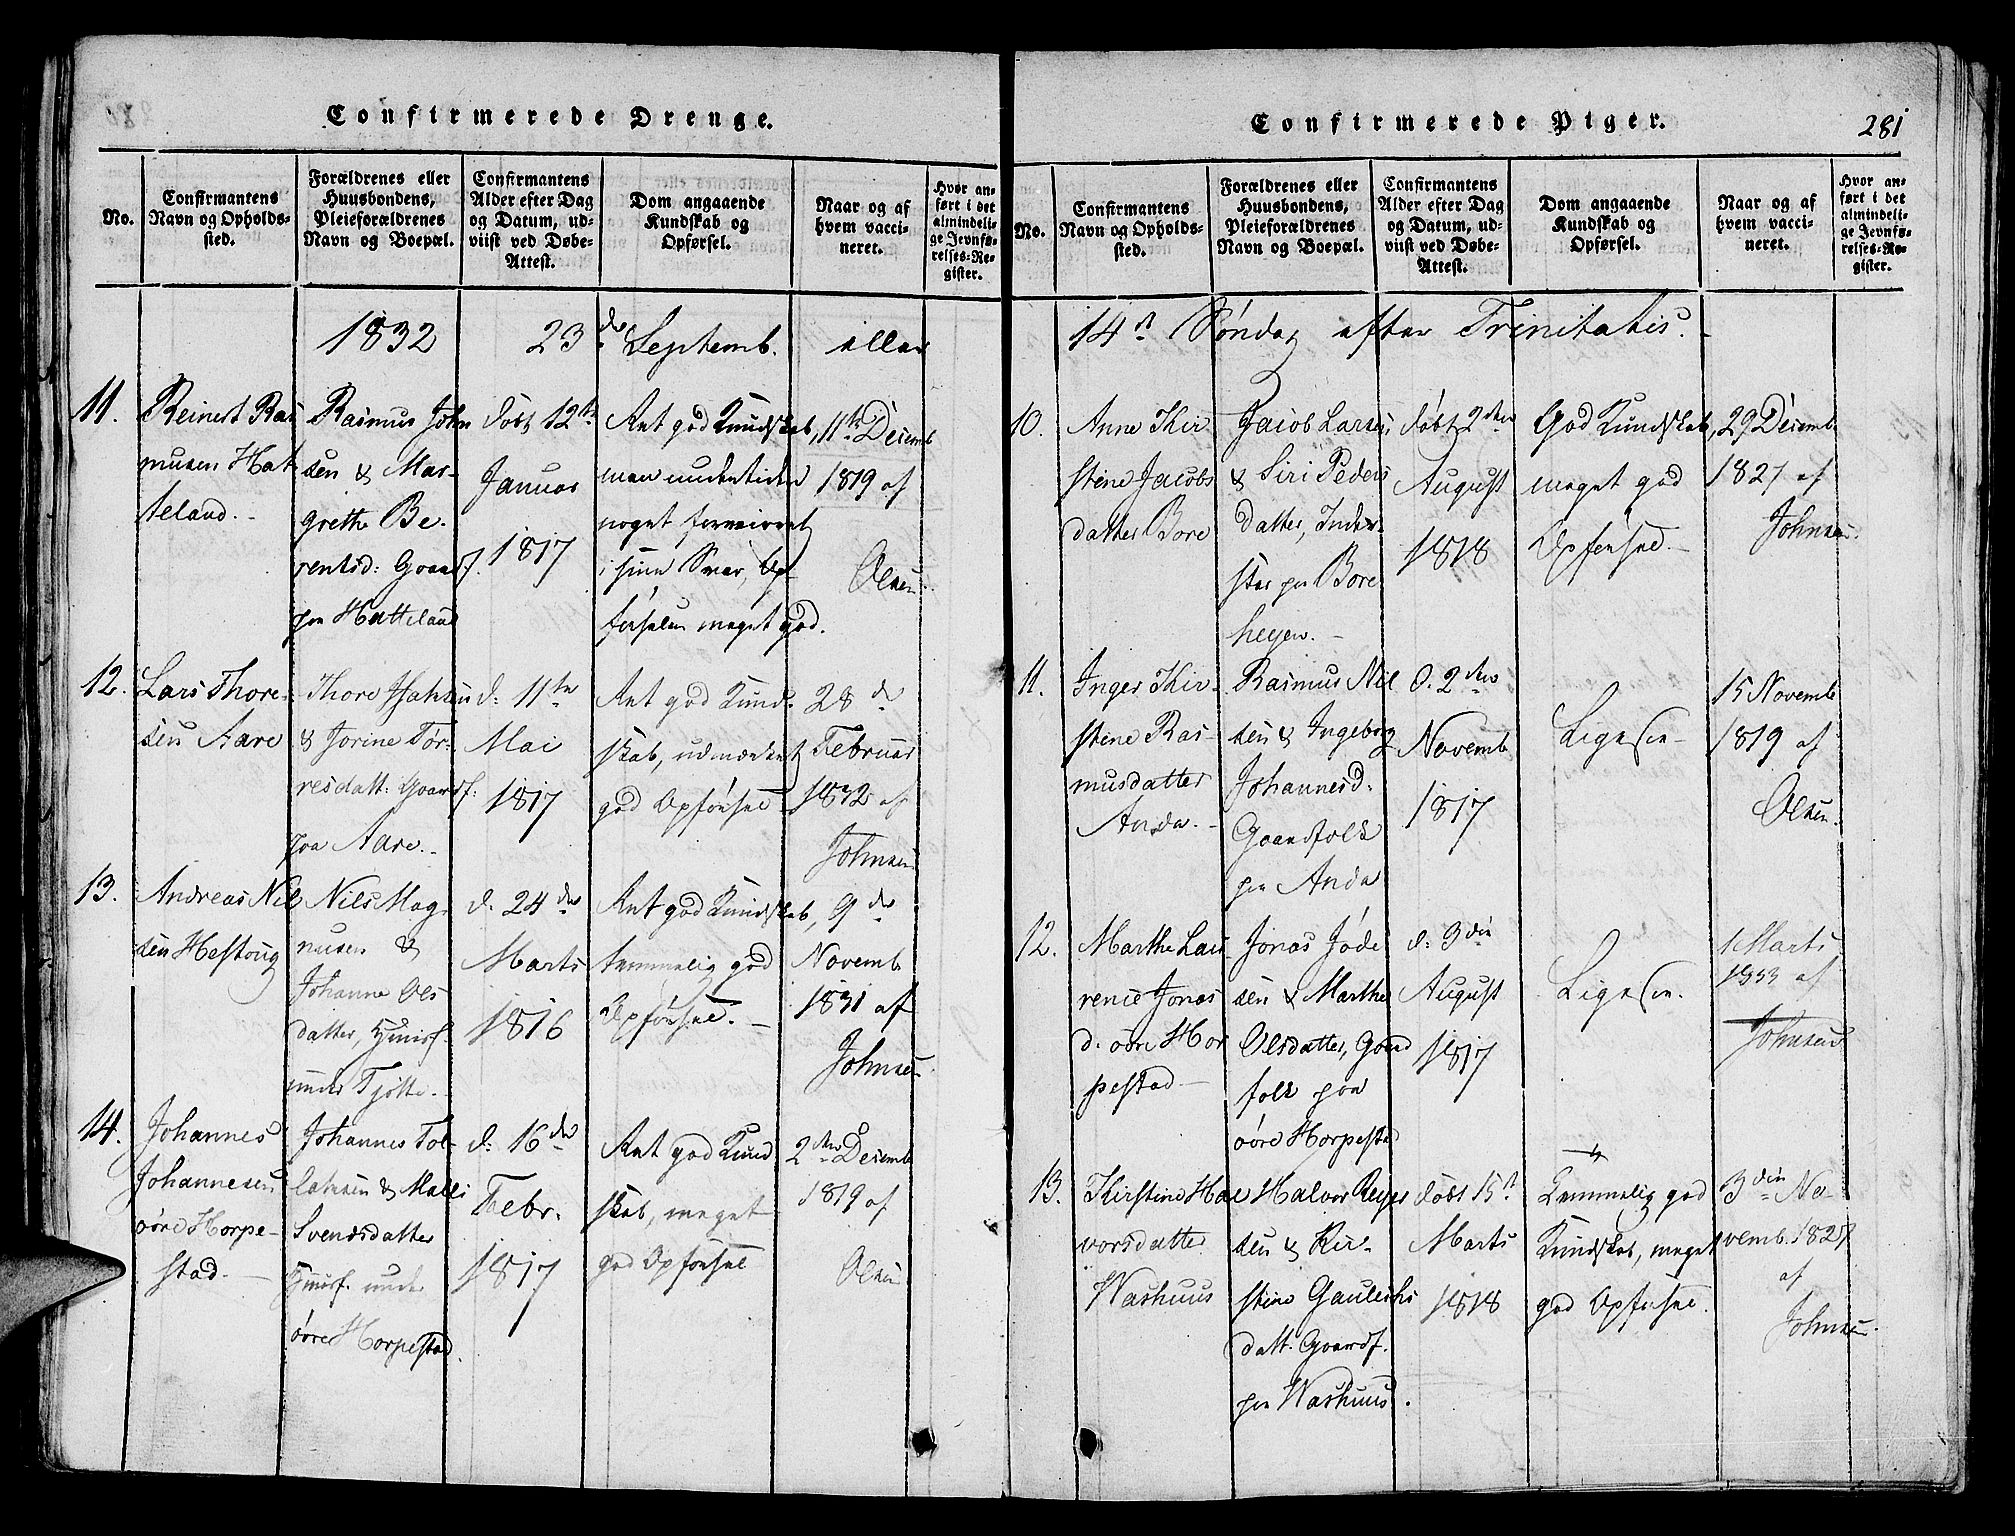 Confirmerede Drenge.
No.
Confirmantens Navn og Opholds-
sted.
Forældrenes eller
Huusbondens,
Pleieforældrenes
Navn og Boepæl.
Confirmantens
Alder efter Dag
og Datum, ud-
viist ved Døbe-
Attest.
Dom angaaende
Kundskab og
Opførsel.
Naar og af
hvem vacci-
neret.
Hvor an-
ført i det
almindeli-
ge Jevnfø-
relses-Re-
gister.
1832 23de Septemb. eller
11.
Reinert Ras
musen Hat
teland.
Rasmus John
sen & Mar-
grethe Be-
rentsd: Gaardf.
paa Hatteland
døbt 12te
Januar
1817
Ret god Kundskab,
men undertiden
noget forvirret
i sine Svar, Op-
førselen meget god.
11te Decemb
1819 af
Olsen.
12.
Lars Thore-
sen Aare
Thore Isaksen
& Jorine Tør-
resdatt: Gaardf:
paa Aare.
d: 11te
Mai
1817
Ret god Kund-
skab, udmærket
god Opførsel
28de
Februar
1832 af
Johnsen
13.
Andreas Nil
sen Hestoug
Nils Mag-
nusen &
Johanne Ols
datter, Huusf.
under Tjøtte.
d. 24de
Marts
1816
Ret god Kundskab,
temmelig god
Opførsel.
9de
Novemb
1831 af
Johnsen
14.
Johannes
Johannesen
øvre Horpe-
stad.
Johannes Tol-
laksen & Malli
Svendsdatter
Huusf. under
øvre Horpestad.
d: 16de
Febr.
1817
Ret god Kund
skab, meget
god Opførsel
2den Decemb
1819 af
Olsen
Confirmerede Piger.
281
No.
Confirmantens
Navn og Opholds-
sted.
Forældrenes eller
Huusbondens,
Pleieforældrenes
Navn og Boepæl.
Confirmantens
Alder efter Dag
og Datum, ud-
viist ved Døbe-
Attest.
Dom angaaende
Kundskab og
Opførsel.
Naar og af
hvem vacci-
neret.
Hvor an-
ført i det
almindeli-
ge Jevnfø-
relses-Re-
gister.
14de Søndag efter Trinitatis.
10.
Anne Kir
stine Jacobs
datter Bore
Jacob Larsen
& Siri Peders
datter, Inder-
ster paa Bore
heyen.
døbt 2den
August
1818
God Kundskab,
meget god
Opførsel.
29 Decemb
1827 af
Johnsen.
11.
Inger Kir-
stine Ras-
musdatter
Anda.
Rasmus Nil
sen & Ingeborg
Johannesd.
Gaardfolk
paa Anda
d. 2den
Novemb
1817
Ligesen
15 Novemb
1819 af
Olsen.
12.
Marthe Lau
rence Jonas
d. øvre Hor
pestad
Jonas Jode
sen & Marthe
Olsdatter, Gaard
folk paa
øvre Horpestad
d: 3die
August
1817
Ligesen.
1 Marts
1833 af
Johnsen
13.
Kirstine Hal
vorsdatter
Washuus
Halvor Reyer
sen & Kir-
stine Gaulichs
datt. Gaardf.
paa Washuus.
døbt 15de
Marts
1818
Temmelig god
Kundskab, meget
god Opførsel.
3die No-
vemb. 1827
af
Johnsen.